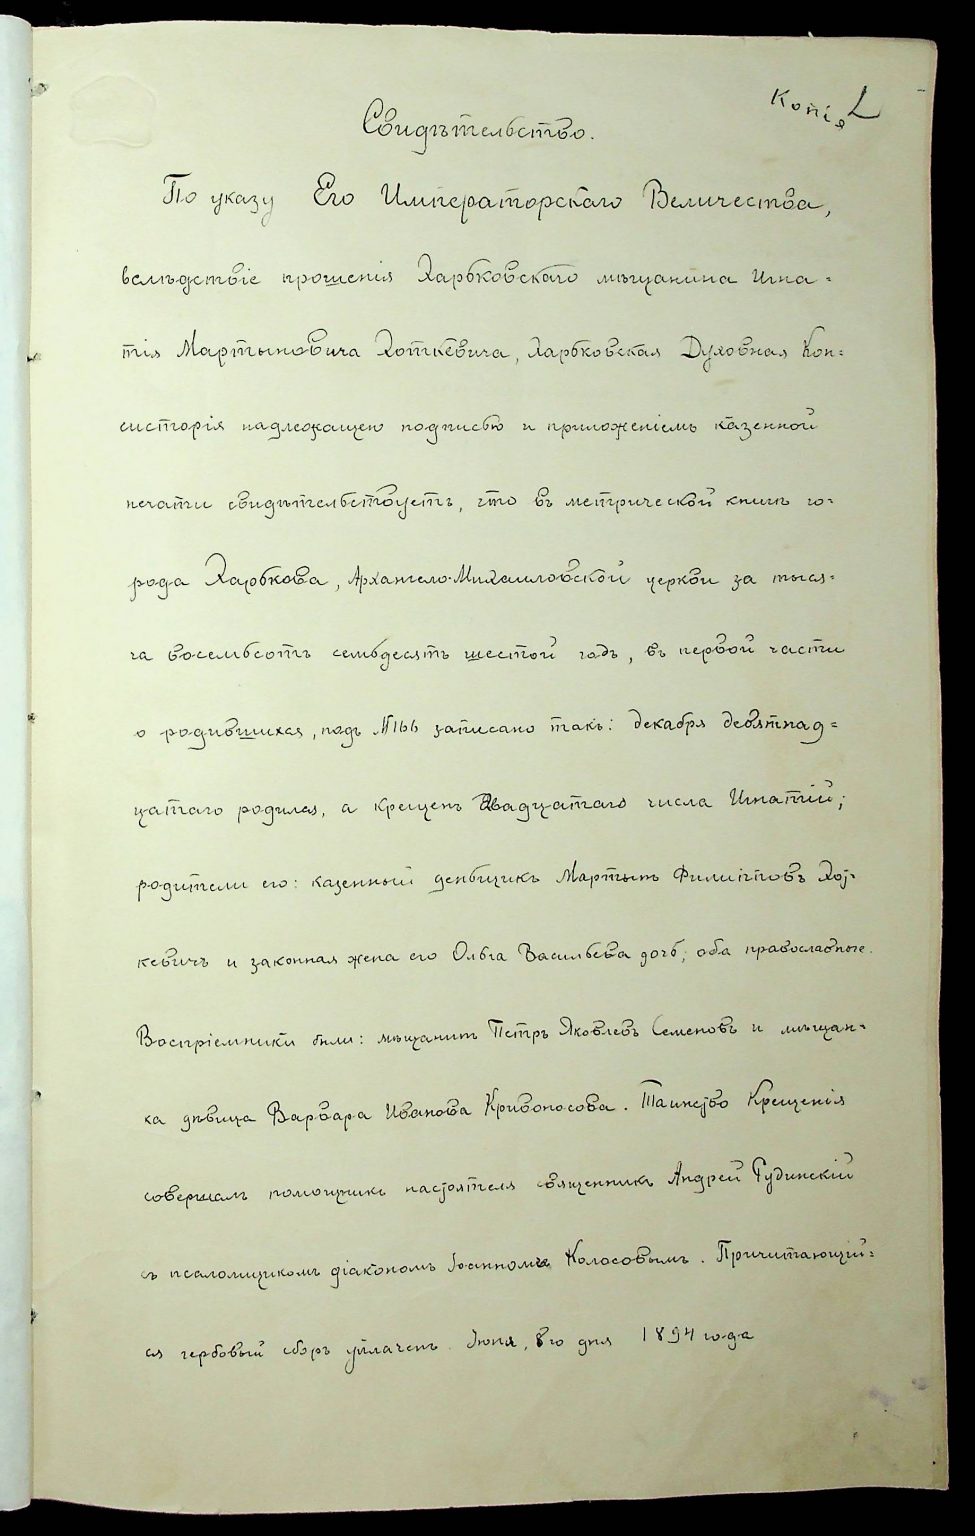 Копія
Свидѣтельство.
По указу Его Императорскаго Величества,
вслѣдствіе прошенія Харьковскаго мѣщанина Игна-
тія Мартыновича Хоткевича, Харьковская Духовная Кон-
систорія надлежащею подписью и приложеніемъ казенной
печати свидѣтельствуетъ, что въ метрической книгѣ го-
рода Харькова, Архангело-Михаиловской церкви за тыся-
ча восемьсотъ семьдесятъ шестой годъ, въ первой части
о родившихся, подъ №166 записано такъ: декабря девятнад-
цатаго родился, а крещенъ двадцатаго числа Игнатій;
родители его: казенный деньщикъ Мартынъ Филипповъ Хот-
кевичъ и законная жена его Ольга Васильева дочь; оба православные.
Воспріемники были: мѣщанинъ Петръ Яковлевъ Семеновъ и мѣщан-
ка дѣвица Варвара Иванова Кривоносова. Таинство Крещенія
совершалъ помощникъ настоятеля священникъ Андрей Рудинскій
съ псаломщикомъ діакономъ Іоанномъ Колосовымъ. Причитающій-
ся гербовый сборъ уплаченъ. Іюня, 8го дня 1894 года